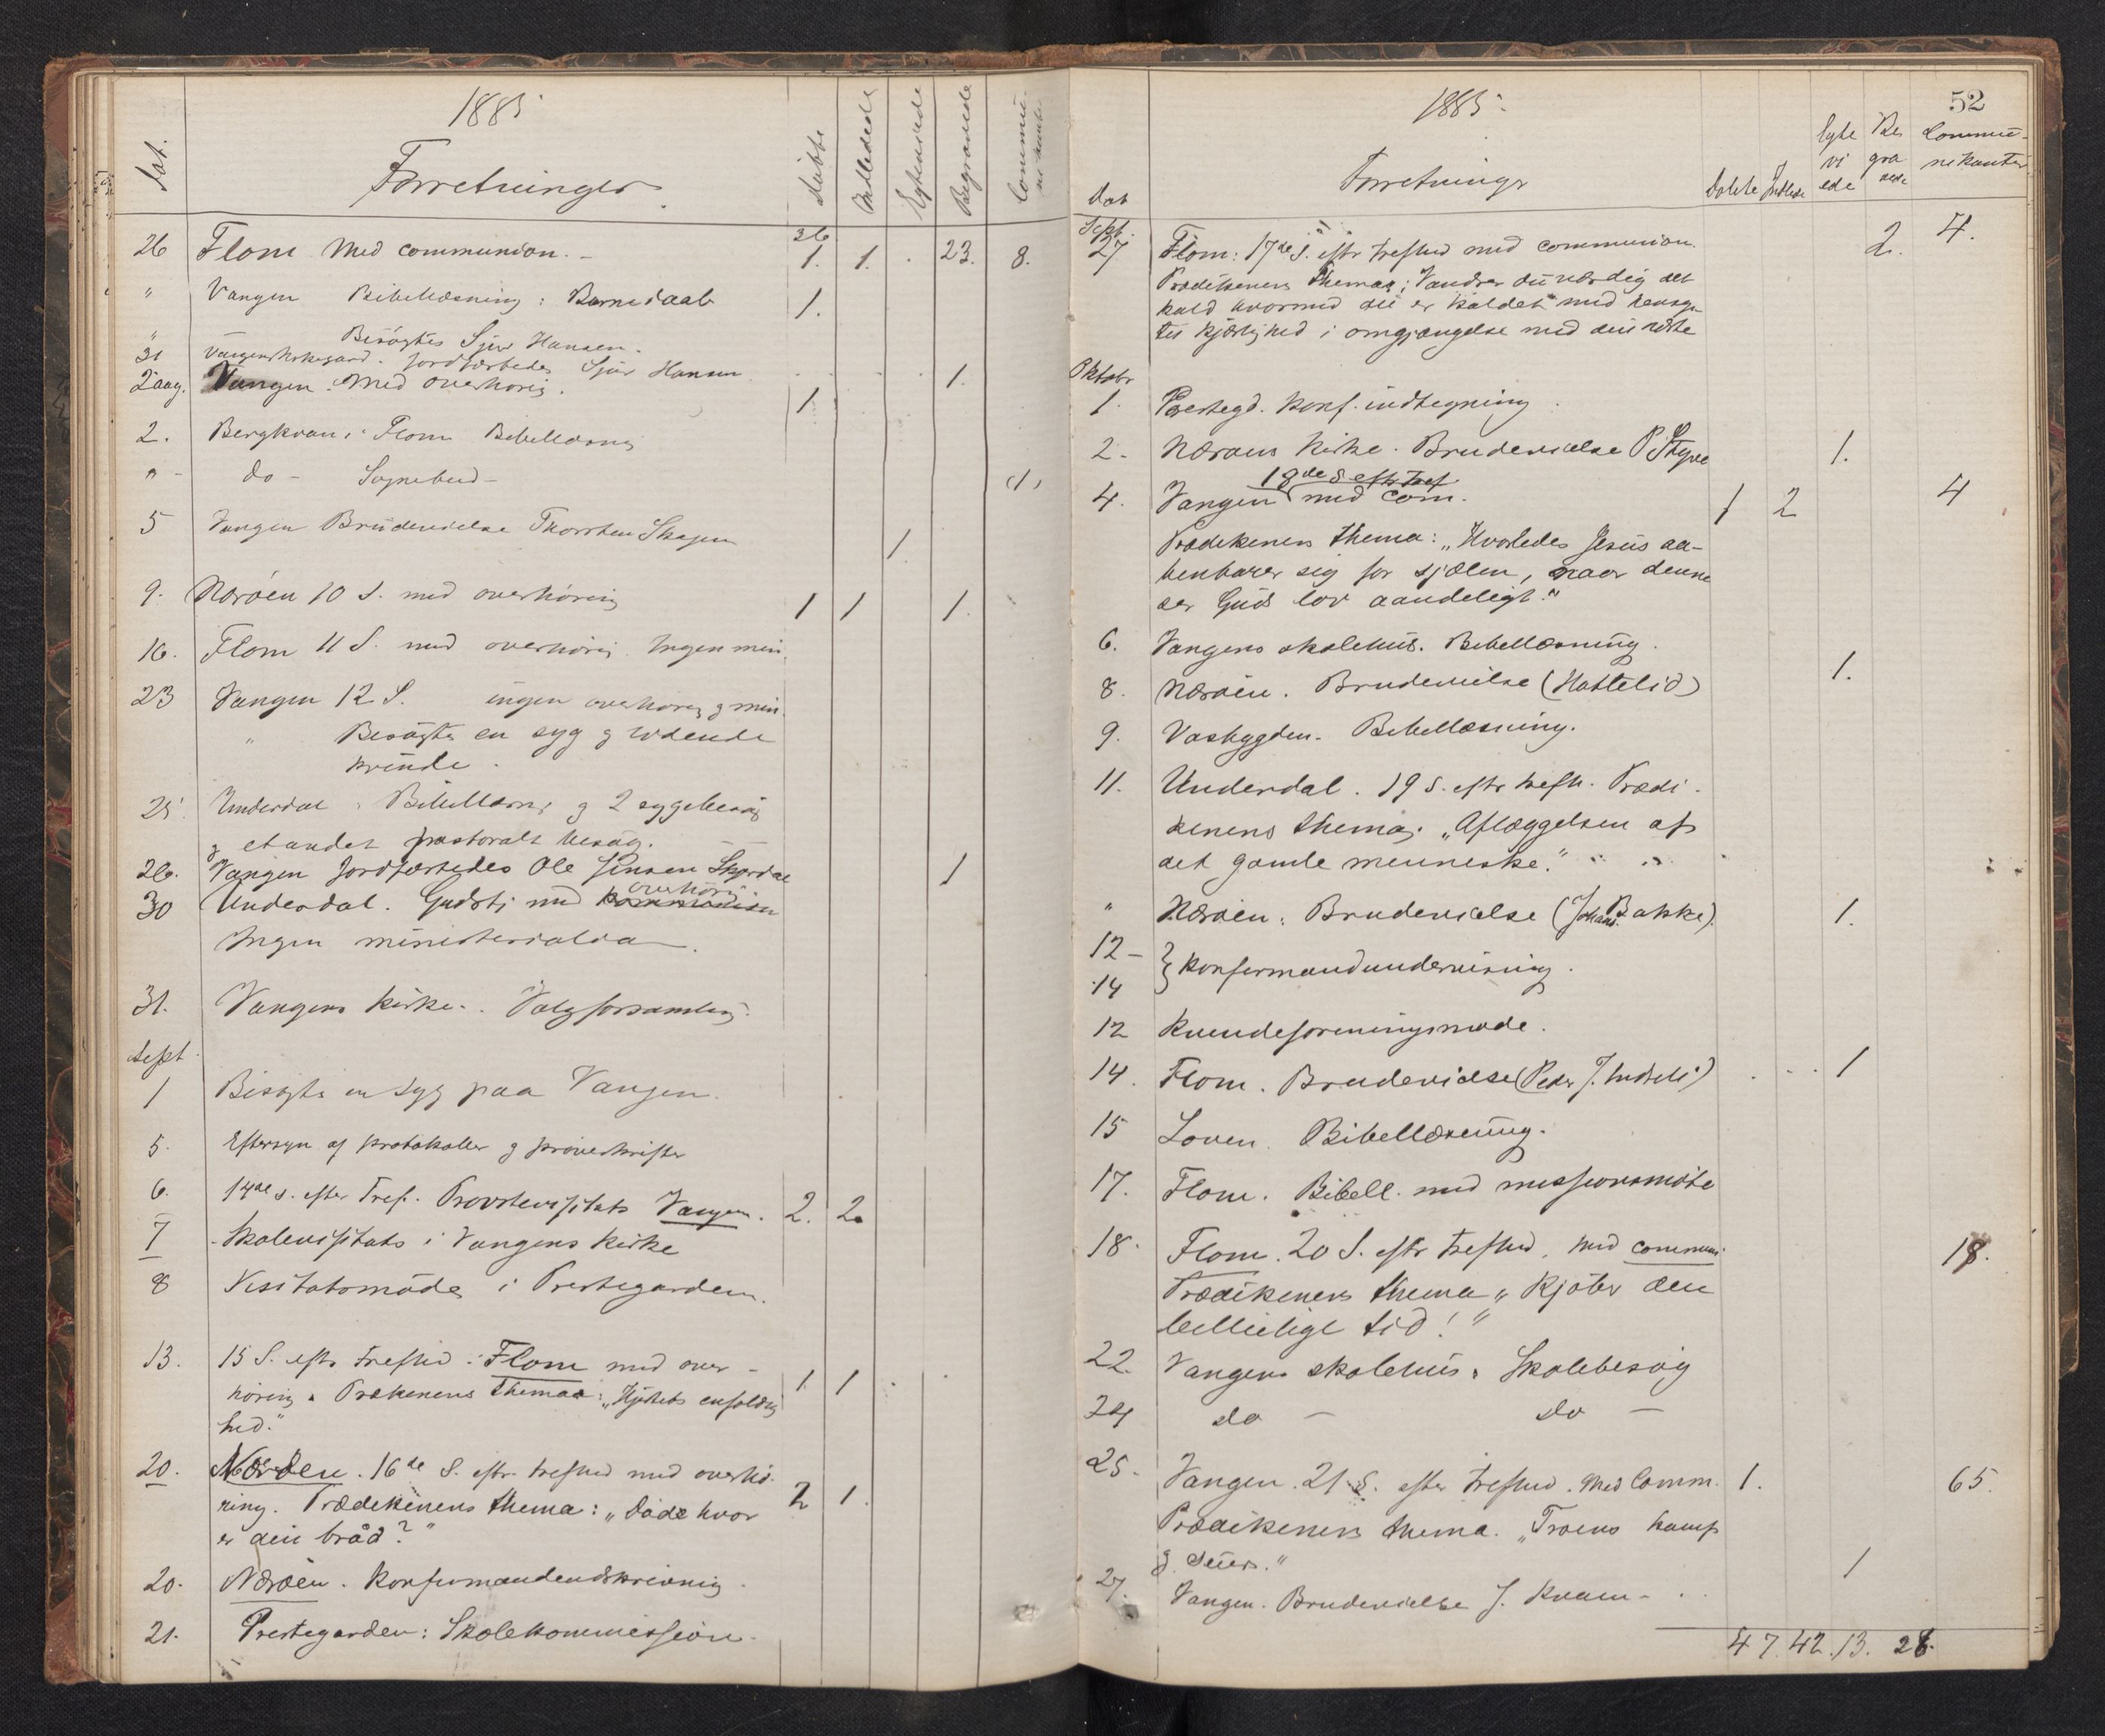 1885
Dat.
Forretninger
Døbte
Indledede
Egteviede
Begravede
Communikanter
26 Flom Med communion. - 36 1. 1. 23. 8.
" Vangen Bibellæsning: Barnedaab 1.
" Besøgtes Sjur Hansen.
31 Vangens kirkegaard. Jordfæstedes Sjur Hansen 1.
2 aug. Vangen. Med overhørig. 1
2. Bergkvam i Flom Bibellæsnig
" - do - Sognebud - (1)
5 Vangen Brudevielse Thorsten Skagen 1
9. Nærøen 10 S. med overhørig 1 1 1.
16. Flom 11 S. med overhørig. Ingen min.
23 Vangen 12 S. ingen overhørig g min.
" Besøgte en syg g lidende
kvinde.
25. Underdal. Bibellæsnig g 2 sygebesøg
g et andet pastoralt besøg.
26. Vangen Jordfæstedes Ole Jensen 1
30 Underdal. Gudstj med kommunion overhørig
Ingen ministerialia.
31. Vangens kirke. Valgforsamling.
Sept.
1 Besøgte en syg paa Vangen.
5. Eftersyn af protokoller g prøveskrifter
6. 14de s. efter Tref. Provstevisitats Vangen. 2. 2.
7 Skolevisitats i Vangens kirke
8 Visitatsmøde i Prestegarden.
13. 15 S. eftr trefhed i Flom med over-
høring. Prækenens thema: „Hjertets enfoldig
hed." 1. 1
20. Nærøen. 16de S. eftr. trefhed med overhø-
ring. Prædikenens thema: „Døde hvor
er din brod?" 2 1.
20. Nærøen. Konfirmandindskrivnig.
21. Prestegarden: Skolekommission.
52
1885.
Dat
Forretninger
Døbte Indlede Egteviede Begravede Communikanter
Sept.
27 Flom: 17de S. eftr trefhed med communion. 2. 4.
Prædikenens thema: „Vandrer du værdig det
kald hvormed du er kaldet" med hensyn
til kjærlighed i omgjængelse med din næste
Oktobr
1. Prestegd. Konf. indtegning.
2. Nærøens kirke. Brudevielse P. Styve 1.
18de S. eftr Tref.
4. Vangen med com. 1 2 4
Prædikenens thema: „Hvorledes Jesus aa-
benbarer sig for sjælen, naar denne
ser Guds lov aandeligt."
6. Vangens skolehus. Bibellæsning.
8. Nærøen. Brudevielse (Hattelid) 1.
9. Vasbygden. Bibellæsning.
11. Underdal. 19 S. eftr trefh. Prædi-
kenens thema: „Aflæggelsen af
det gamle menneske."
" Nærøen: Brudevielse (Johans. Bakke). 1.
12 -
14 } Konfirmandundervisning.
12 Kvindeforeningsmøde.
14. Flom. Brudevielse (Peder J. Indreli) 1
15 Loven. Bibellæsning.
17. Flom. Bibell. med missionsmøte
18. Flom. 20 S. eftr trefhed. med commun: 18.
Prædikenens thema „Kjøber den
beleilige tid!"
22. Vangens skolehus. Skolebesøg
24 do - do -
25. Vangen. 21 S. efter trefhed. Med Comm. 1. 65.
Prædikenens thema. „Troens kamp
g seier."
27. Vangen. Brudevielse J. Kvam - 1
47. 42. 13. 28.